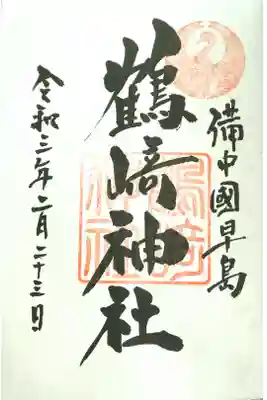 備中國早島
鶴﨑神社
令和三年二月二十三日